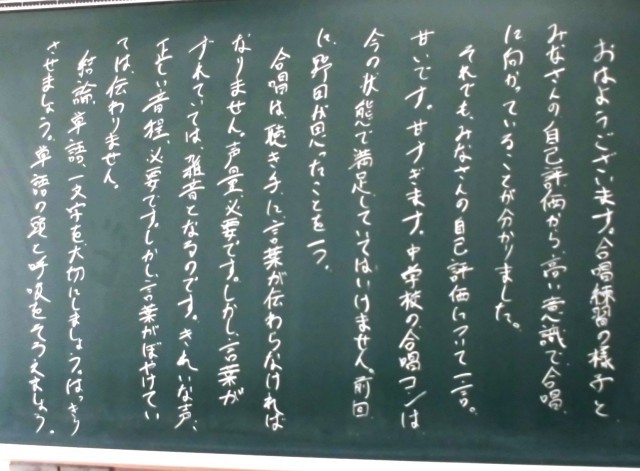 おはようございます。合唱練習の様子と
みなさんの自己評価から、高い意識で合唱
に向かっていることが分かりました。
それでも、みなさんの自己評価について一言。
甘いです。甘すぎます。中学校の合唱コンは
今の状態で満足していてはいけません。前回
に、野田が思ったことを一つ。
合唱は、聴き手に、言葉が伝わらなければ
なりません。声量、必要です。しかし、言葉が
ずれていては、雑音となるのです。きれいな声、
正しい音程、必要です。しかし、言葉がぼやけてい
ては、伝わりません。
結論、単語、一文字を大切にしましょう。はっきり
させましょう。単語の頭と呼吸をそろえましょう。